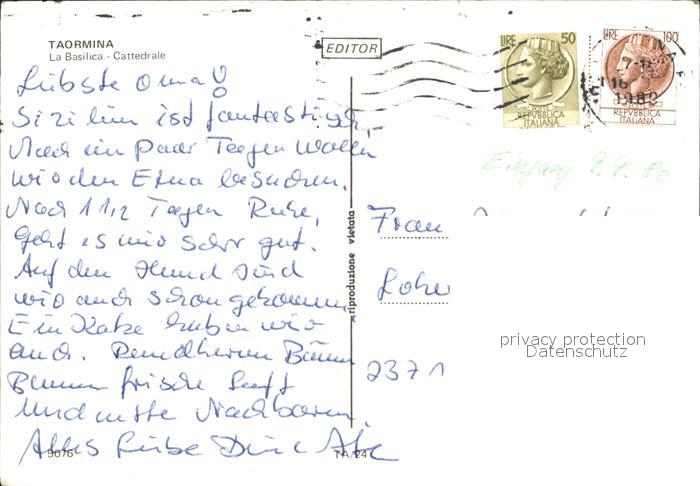 TAORMINA
La Basilica - Cattedrale
EDITOR
LIRE 50
REPVBBLICA
ITALIANA
LIRE 100
REPVBBLICA
ITALIANA
7-11
16
Liebste Oma!
Sizilien ist fantastisch,
Nach ein paar Tagen wollen
wir den Etna besuchen.
Nach 1 1/2 Tagen Ruhe,
Geht es mir sehr gut.
Auf den Hund sind
wir auch schon gekommen
Ein Katze haben wir
auch. Bäum
Blumen frische Luft
Und nette Nachbaren.
Alles Liebe Deine
Eingang 80
Frau
2371
riproduzione vietata
privacy protection
Datenschutz
9076
TA/24